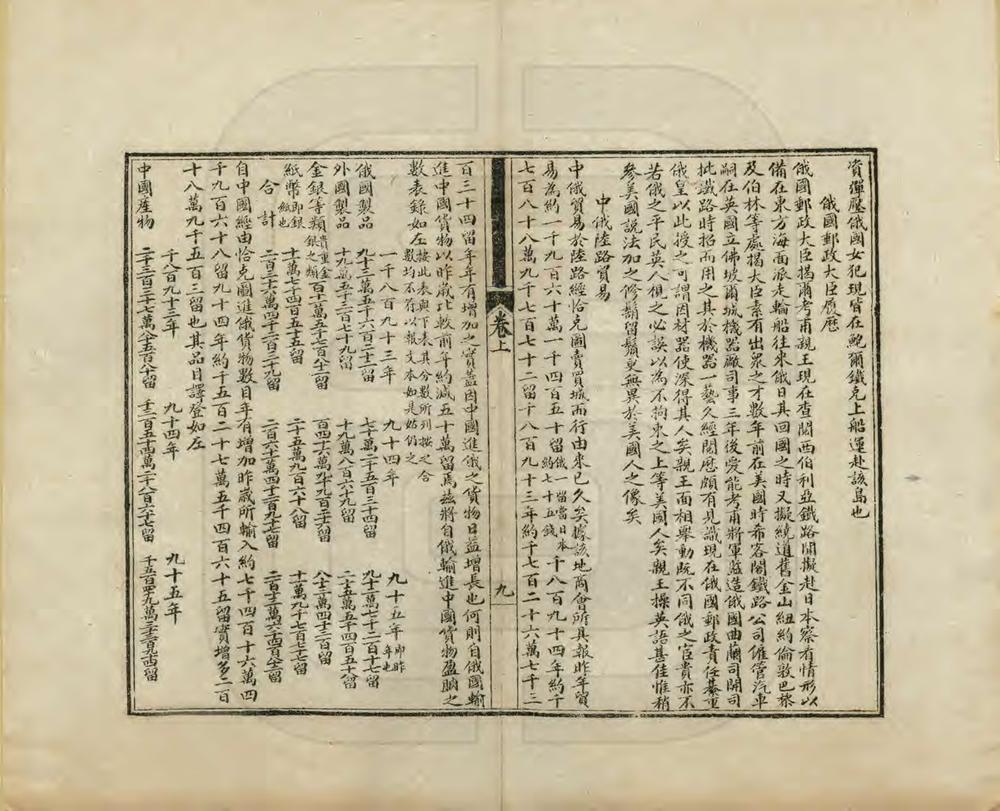 資彈壓俄國女犯現皆在鮑爾鐵克上船運赴該島也
俄國郵政大臣履歷
俄國郵政大臣揭爾考甫親王現在查閱西伯利亞鐵路閒擬赴日本察看情形以
備在東方海面派走輪船往來俄日其回國之時又擬繞道舊金山紐約倫敦巴黎
及伯林等處揭大臣素有出衆之才數年前在美國時希客閣鐵路公司僱管汽車
嗣在英國立佛坡爾城機器廠司事三年後愛能考甫將軍監造俄國曲蘭司開司
批鐵路時招而用之其於機器一藝久經閱歷頗有見識現在俄國郵政責任綦重
俄皇以此授之可謂因材器使深得其人矣親王面相舉動旣不同俄之官貴亦不
若俄之平民英人視之必誤以為不拘束之上等美國人矣親王操英語甚佳惟稍
參美國說法加之修鬍留鬚更無異於美國人之像矣
中俄陸路貿易
中俄貿易於陸路經恰克圖賣買城而行由來已久矣據該地商會所具報昨年貿
易為約一千九百六十萬一千四百五十留俄一留當日本約七十五錢千八百九十四年約千
七百八十八萬九千七百七十二留千八百九十三年約千七百二十六萬七千三
卷上
九
百三十四留年年有增加之實蓋因中國進俄之貨物日益增長也何則自俄國輸
進中國貨物以昨歲比數前年約減五十萬留焉茲將自俄輸進中國貨物盈朒之
數表錄如左按此表與下表其分數所列按之合數均不符以報文本如是姑仍之
一千八百九十三年 九十四年 九十五年即昨年也
俄國製品 九十三萬五千六百二十二留 七十萬二千五百三十四留 九十一萬七千二百十七留
外國製品 十九萬五千三百七十九留 十九萬八百六十九留 二十五萬五千四百五十留
金銀等類貴重金銀之類 百十一萬五千七百八十一留 百四十六萬九千九百二十三留 八十一萬四千三百留
紙幣即銀紙也 十一萬七千四百五十五留 二十五萬九百六十八留 十一萬九千七百七十七留
合計 二百三十六萬四千二百二十九留 二百六十一萬四千三百九十三留
自中國經由恰克圖進俄貨物數目年有增加昨歲所輸入約七千四百十六萬四
千九百六十八留九十四年約千五百二十七萬五千四百六十五留實增多二百
十八萬九千五百三留也其品目譯登如左
千八百九十三年 九十四年 九十五年
中國產物